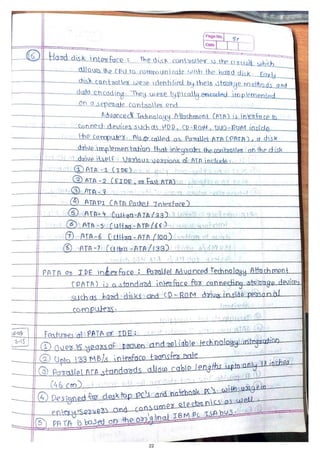 Page No. 51
Date
⑥ Hard disk Interface : The disk controller is the circuit which
allows the CPU to communicate with the hard disk. Early
disk controllers were identified by their storage methods and
data encoding. They were typically implemented
on a seperate controller end
Advanced Technology Attachment (ATA) is interface to
connect devices such as HDD, CD-ROM, DVD-ROM inside
the computer. Also called as Parallel ATA (PATA), a disk
drive implementation that integrates the controller on the disk
drive itself. Various versions of ATA include:
① ATA - 1 (IDE)
② ATA - 2 (EIDE, or Fast ATA)
③ ATA - 3
④ ATAPI (ATA Packet Interface)
⑤ ATA - 4 (ultra-ATA/33)
⑥ ATA - 5 (ultra-ATA/66)
⑦ ATA - 6 (ultra-ATA/100)
⑧ ATA - 7 (ultra-ATA/133)
PATA or IDE interface : Parallel Advanced Technology Attachment
(PATA) is a standard interface for connecting storage devices
such as hard disks and CD-ROM drives inside personal
computers.
Features of PATA or IDE :
① Over 15 years of proven and reliable technology integration
② Upto 133 MB/s interface transfer rate
③ Parallel ATA standards allow cable lengths upto only 18 inches
(46 cm)
④ Designed for desktop PC's and notebook PC's with usage in
entry servers and consumer electronics as well.
⑤ PATA is based on the original IBM PC ISA bus.
22